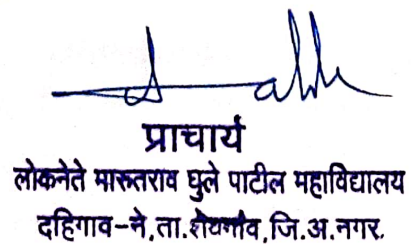 प्राचार्य
लोकनेते मारुतराव घुले पाटील महाविद्यालय
दहिगाव-ने, ता. शेवगांव, जि.अ.नगर.